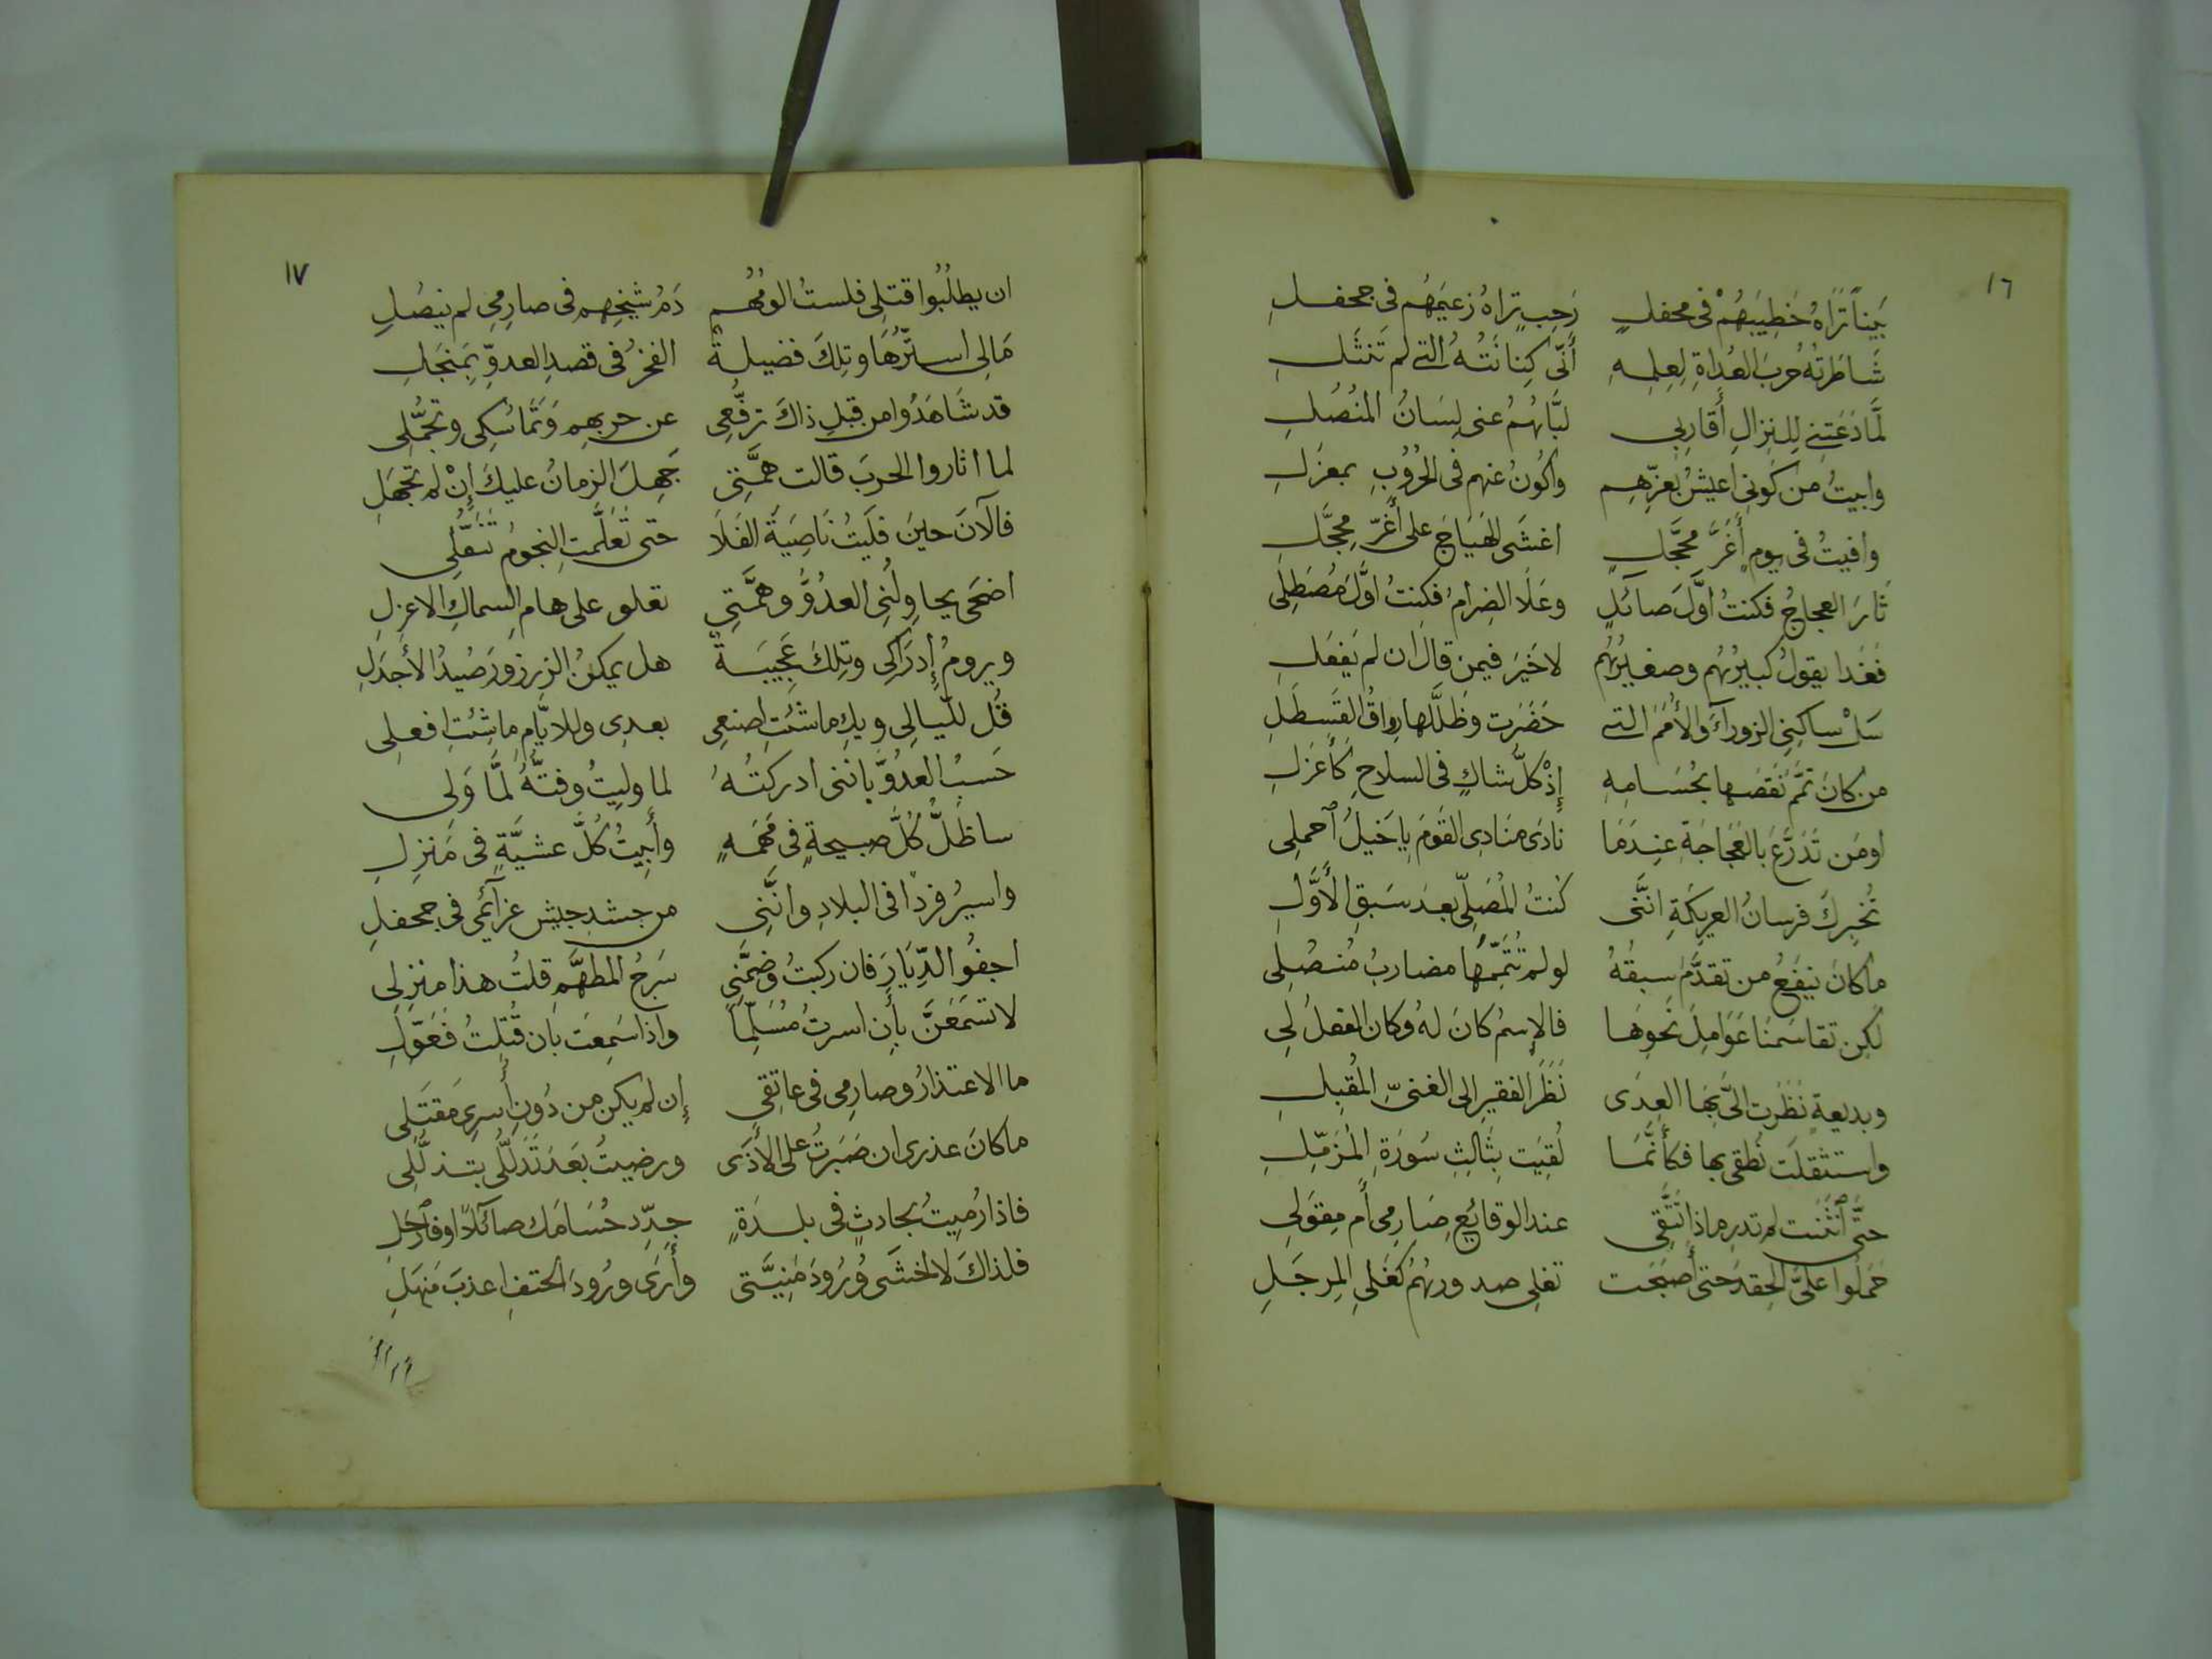 ١٦
بَيْنَا تَرَاهُ خَطِيبَهُمْ فى محفلٍ رَحِبٍ تراهُ زعيمَهُم فى جحفلِ
شَاطَرتُهُ حُربَ العُداةِ لِعِلمِهِ أَنّى كِنَانَتُهُ التى لم تَنثَلِ
لَّما دَعَتنى لِلنِزالِ أَقارِبى لبَّاهُمُ عنى لِسَانُ المنُصُلِ
وابيتُ من كَونى اعيشُ بعزِّهِم واكُونُ عنهم فى الحُرُوبِ بمعزَلِ
وافيتُ فى يومٍ أَغَرَّ محجَّلٍ اغشَى الهَيَاجَ على أَغرّ مُحجَّلِ
ثَارَ العجاجُ فكنتُ اوَّلَ صائلٍ وعَلَا الضِرامُ فكنتُ اوَّلَ مُصْطَلِى
فَغَدا يقولُ كبيرُهُم وصغيرُهُم لاخَيرَ فيمن قال ان لم يَفعَلِ
سَلْ ساكِنِى الزوراءَ والأُمَمَ التى حَضَرَت وظَلَّلَها رِواقُ القَسطَلِ
من كانَ تمَّمَ نَقصَها بحُسَامِهِ إِذْ كلُّ شاكٍ فى السلاحِ كَأَعزَلِ
اومَن تَدَرَّعَ بالعَجَاجَةِ عِندَمَا نادَى مَنادِى القَومِ يا خَيلُ ٱحملِى
تُخبِركَ فرسانُ العريكَةِ انَّنى كُنتُ المُصَلِّى بعدَ سَبقِ الأَوَّلِ
ماكانَ يَنفَعُ من تقدَّمَ سبقُهُ لو لم تُتَمِّمها مضاربُ مُنصُلِى
لكِن تقاسَمنَا عَوَامِلَ نَحوِهَا فالإِسمُ كانَ لهُ وكان الفعلُ لِى
وبديعةٍ نَظَرَت الىَّ بِهَا العِدَى نَظَرَ الفقيرِ الى الغنىِّ المُقبِلِ
واستثقلَت نُطقى بها فكأَنَّمَا لُقِيَت بِثَالِثِ سُورَةِ المُزَمِّلِ
حتَّى ٱنثَنَت لم تدرِ ماذا تَتَّقِى عند الوقائِعِ صَارِمى أَم مِقوَلِى
حَمَلُوا علىَّ الحِقدَ حتى أَصبَحَت تغلِى صدورهُمُ كَغَلىِ المِرجَلِ
١٧
ان يطلُبُوا قتلى فلستُ الومُهُم دَمُ شَيخِهِم فى صارِمِى لم يَنصُلِ
مَالى استرُّهَا وتِلكَ فضيلةٌ الفخرُ فى قصدِ العدوِّ بِمَنجَلِ
قد شَاهَدُوا من قبلِ ذاكَ ترفُّعِى عن حربهِم وَتَمَاسُكِى وتجمُّلى
لما اثاروا الحربَ قالت همَّتِى جَهِلَ الزمانُ عليكَ إِنْ لم تجهَلِ
فالآنَ حينَ فلَيتُ نَاصِيَةَ الفَلَا حتى تَعَلَّمتِ النجومُ تَنَقُّلِى
اضحَى يحاوِلُنِى العدُوُّ وهمَّتِى تعلو على هامِ السماكِ الاعزلِ
ويرومُ إِدرَاكِى وتِلكَ عَجِيبَةٌ هل يمكنُ الزرزورَ صَيدُ الأَجدَلِ
قُل للّيالِى ويكِ ماشئتِ اصنعِى بعدى وللايَّامِ ماشِئتِ افعلى
حَسبُ العدُوِّ بانَّنى ادركتُهُ لما وليتُ وفتُّهُ لمَّا وَلِى
ساظَلُّ كُلَّ صبيحةٍ فى مَهمَهٍ وأَبِيتُ كُلَّ عشيَّةٍ فى مَنزِلِ
واسيرُ فردًا فى البلادِ وانَّنِى من حشدِ جيش عزآئمى فى جحفلِ
اجفُو الدِّيَارَ فان ركبتُ وضَمَّنِى سَرجُ المطهَّمِ قلتُ هذا منزِلِى
لاتسمَعَنَّ بأَن اسرتُ مُسَلِّمًا واذا سَمِعتَ بان قُتِلتُ فَعَوِّلِ
ما الاعتذارُ وصارِمِى فى عاتِقِى إِن لم يكن من دُونِ أَسرِى مَقتَلِى
ماكانَ عذرى ان صَبَرتُ على الأَذَى ورضيتُ بَعَدَ تَدَلُّلى بتذلُّلِى
فاذا رُميتُ بحادثٍ فى بلدَةٍ جرِّد حُسَامَك صآئلًا اوفٱرحَلِ
فلذاكَ لااخشَى وُرُودَ مَنِيَّتى وأَرَى ورُودَ الحتفِ اعذبَ مَنهَلِ